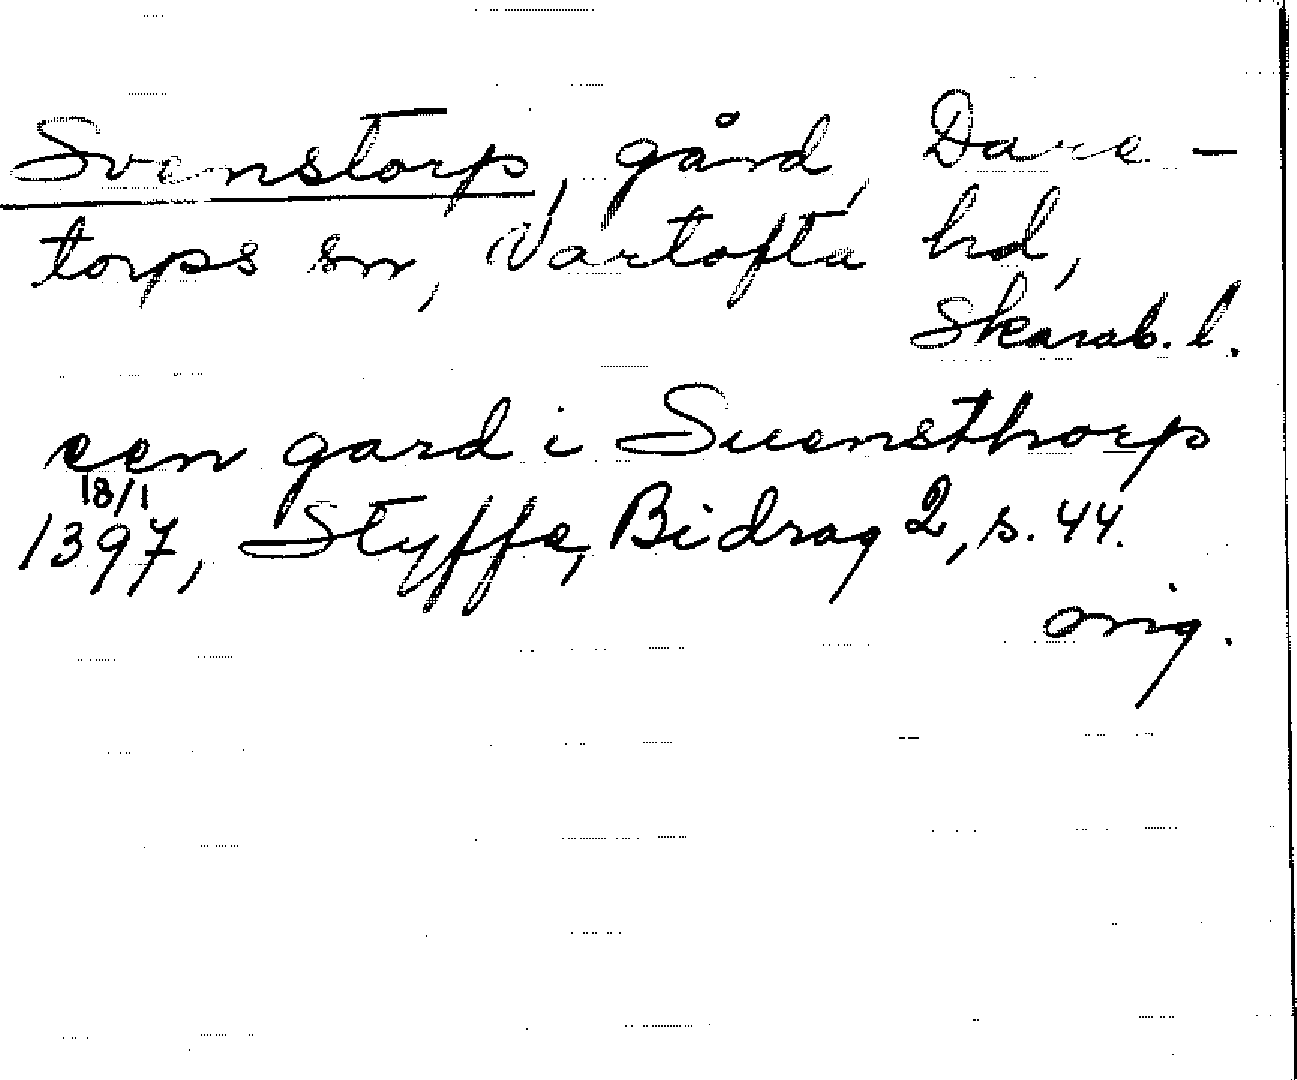 Svenstorp, gård, Dare-
torps sn, Vartofta hd,
Skarab. l.
een gard i Suensthorp
18/1
1397, Styffe, Bidrag 2, s. 44.
orig.